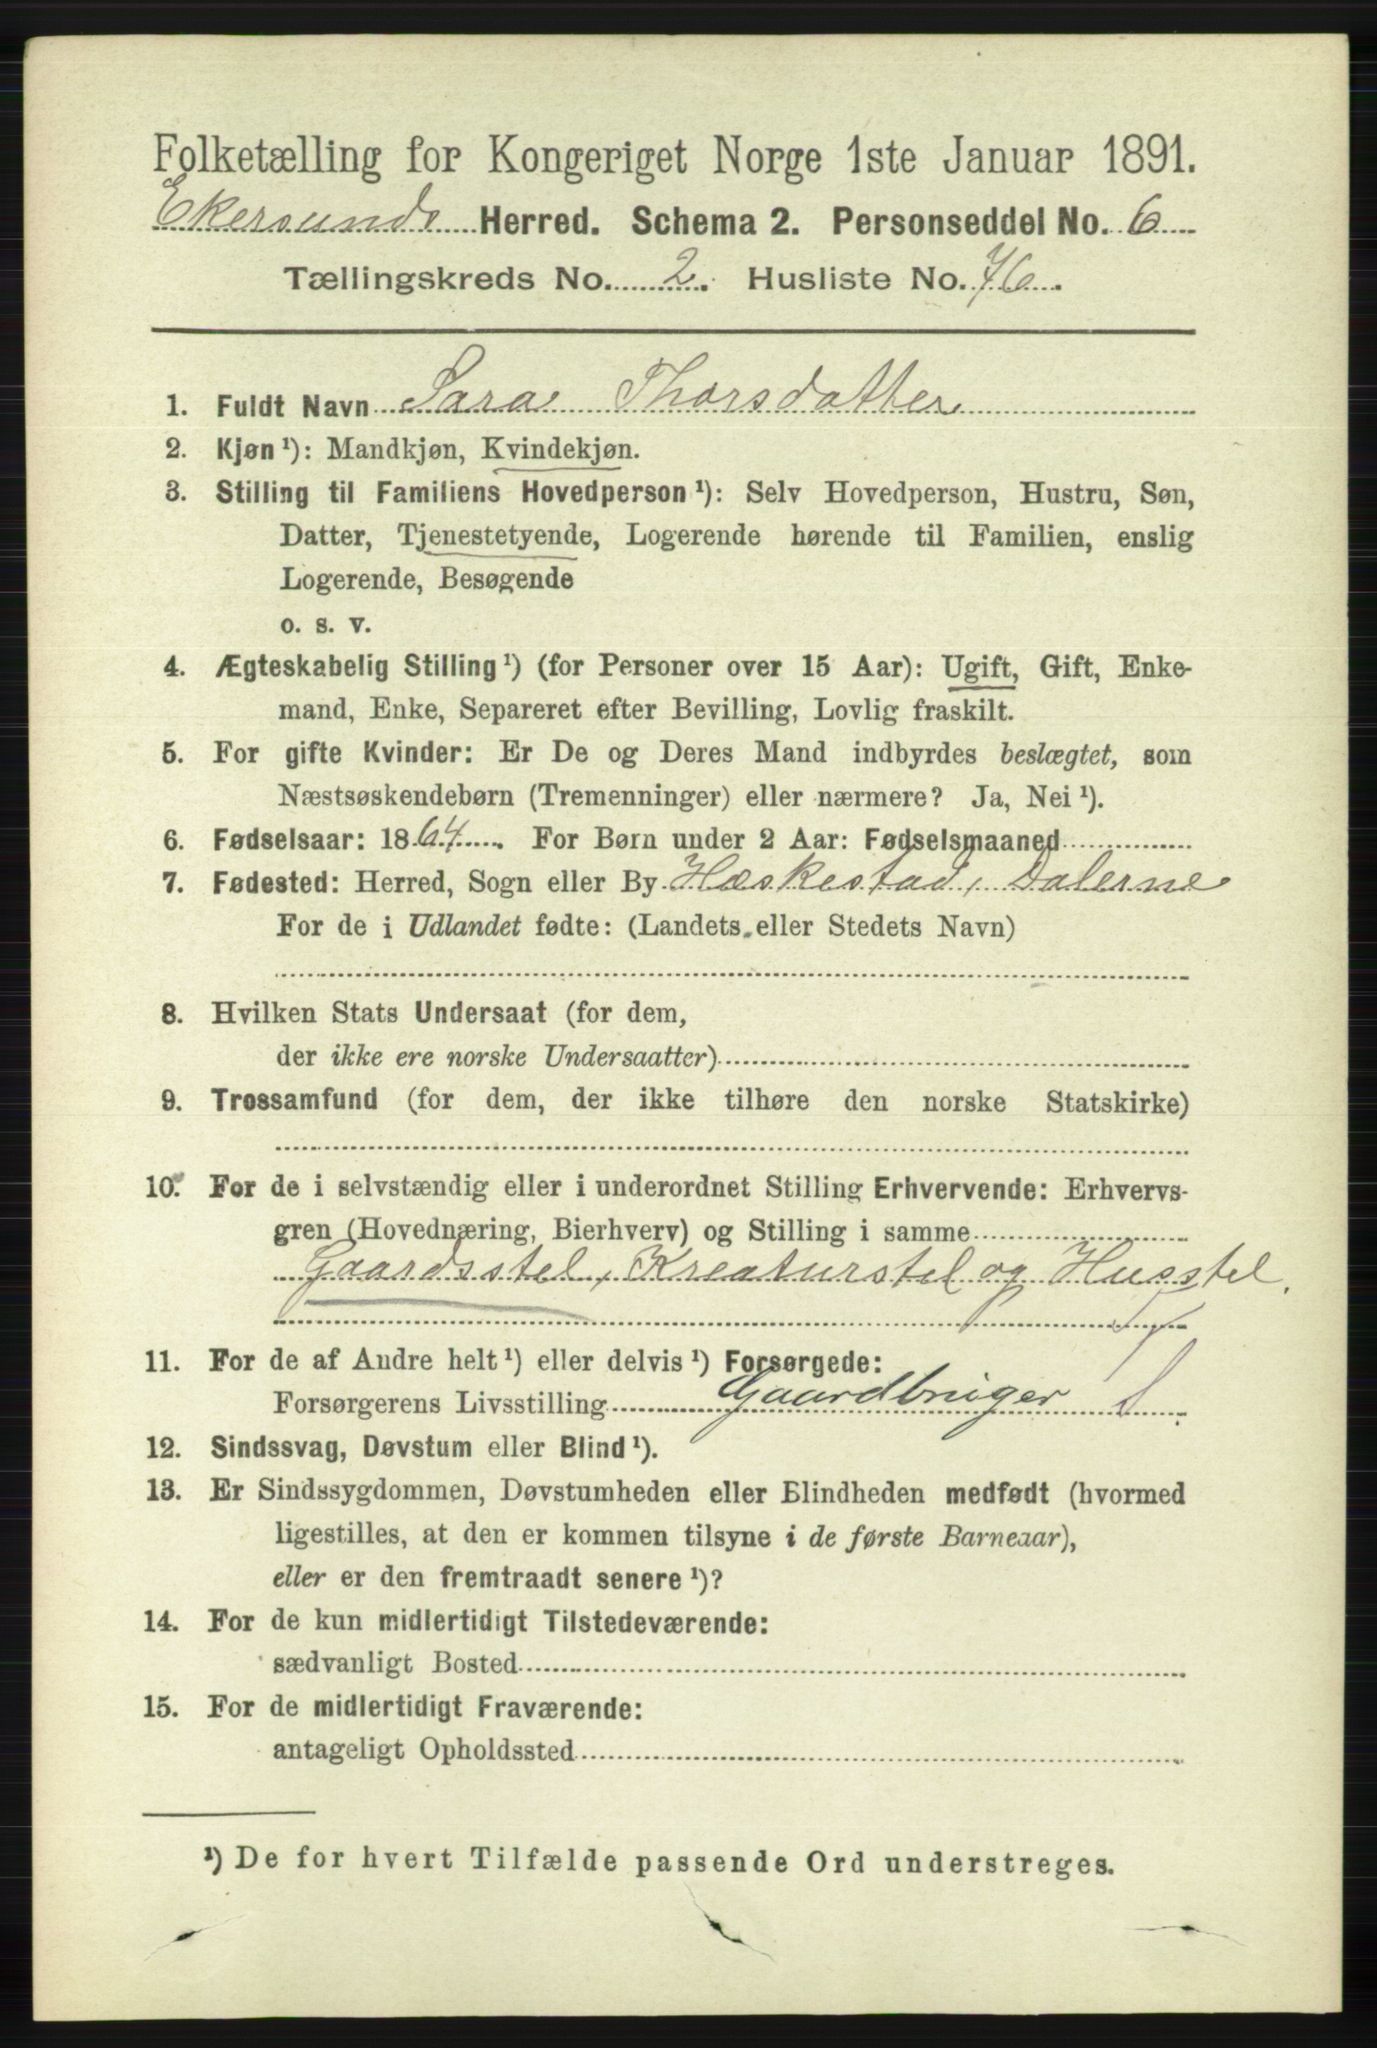 Folketælling for Kongeriget Norge 1ste Januar 1891.
Ekersunds Herred. Schema 2. Personseddel No. 6
Tællingskreds No. 2. Husliste No. 76.
1. Fuldt Navn Sara Thorsdatter
2. Kjøn ¹): Mandkjøn, Kvindekjøn.
3. Stilling til Familiens Hovedperson ¹): Selv Hovedperson, Hustru, Søn,
Datter, Tjenestetyende, Logerende hørende til Familien, enslig
Logerende, Besøgende
o. s. v.
4. Ægteskabelig Stilling ¹) (for Personer over 15 Aar): Ugift, Gift, Enke-
mand, Enke, Separeret efter Bevilling, Lovlig fraskilt.
5. For gifte Kvinder: Er De og Deres Mand indbyrdes beslægtet, som
Næstsøskendebørn (Tremenninger) eller nærmere? Ja, Nei ¹).
6. Fødselsaar: 1864. For Børn under 2 Aar: Fødselsmaaned
7. Fødested: Herred, Sogn eller By Hæskestad, Dalerne
For de i Udlandet fødte: (Landets eller Stedets Navn)
8. Hvilken Stats Undersaat (for dem,
der ikke ere norske Undersaatter)
9. Trossamfund (for dem, der ikke tilhøre den norske Statskirke)
10. For de i selvstændig eller i underordnet Stilling Erhvervende: Erhvervs-
gren (Hovednæring, Bierhverv) og Stilling i samme
Gaardsstel, Kreaturstel og Husstel.
11. For de af Andre helt ¹) eller delvis ¹) Forsørgede:
Forsørgerens Livsstilling Gaardbruger
12. Sindssvag, Døvstum eller Blind ¹).
13. Er Sindssygdommen, Døvstumheden eller Blindheden medfødt (hvormed
ligestilles, at den er kommen tilsyne i de første Barneaar),
eller er den fremtraadt senere ¹)?
14. For de kun midlertidigt Tilstedeværende:
sædvanligt Bosted
15. For de midlertidigt Fraværende:
antageligt Opholdssted
¹) De for hvert Tilfælde passende Ord understreges.